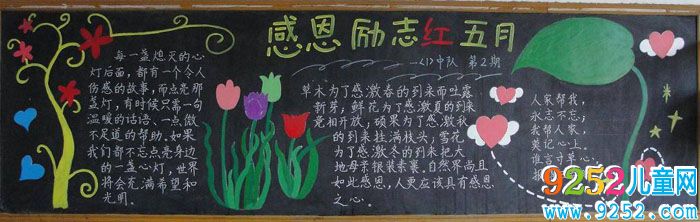 感恩励志红五月
一<1>中队 第2期
每一盏熄灭的心
灯后面,都有一个令人
伤感的故事,而点亮那
盏灯,有时候只需一句
温暖的话语、一点微
不足道的帮助。如果
我们都不忘点亮身边
的一盏心灯,世界
将会充满希望和
光明。
草木为了感激春的到来而吐露
新芽,鲜花为了感激夏的到来
竞相开放;硕果为了感激秋
的到来挂满枝头,雪花
为了感激冬的到来把大
地母亲银装素裹。自然界尚且
如此感恩,人更应该具有感恩
之心。
人家帮我,
永志不忘;
我帮人家,
莫记心上。
谁言寸草心,
9252儿童网
www.9252.com